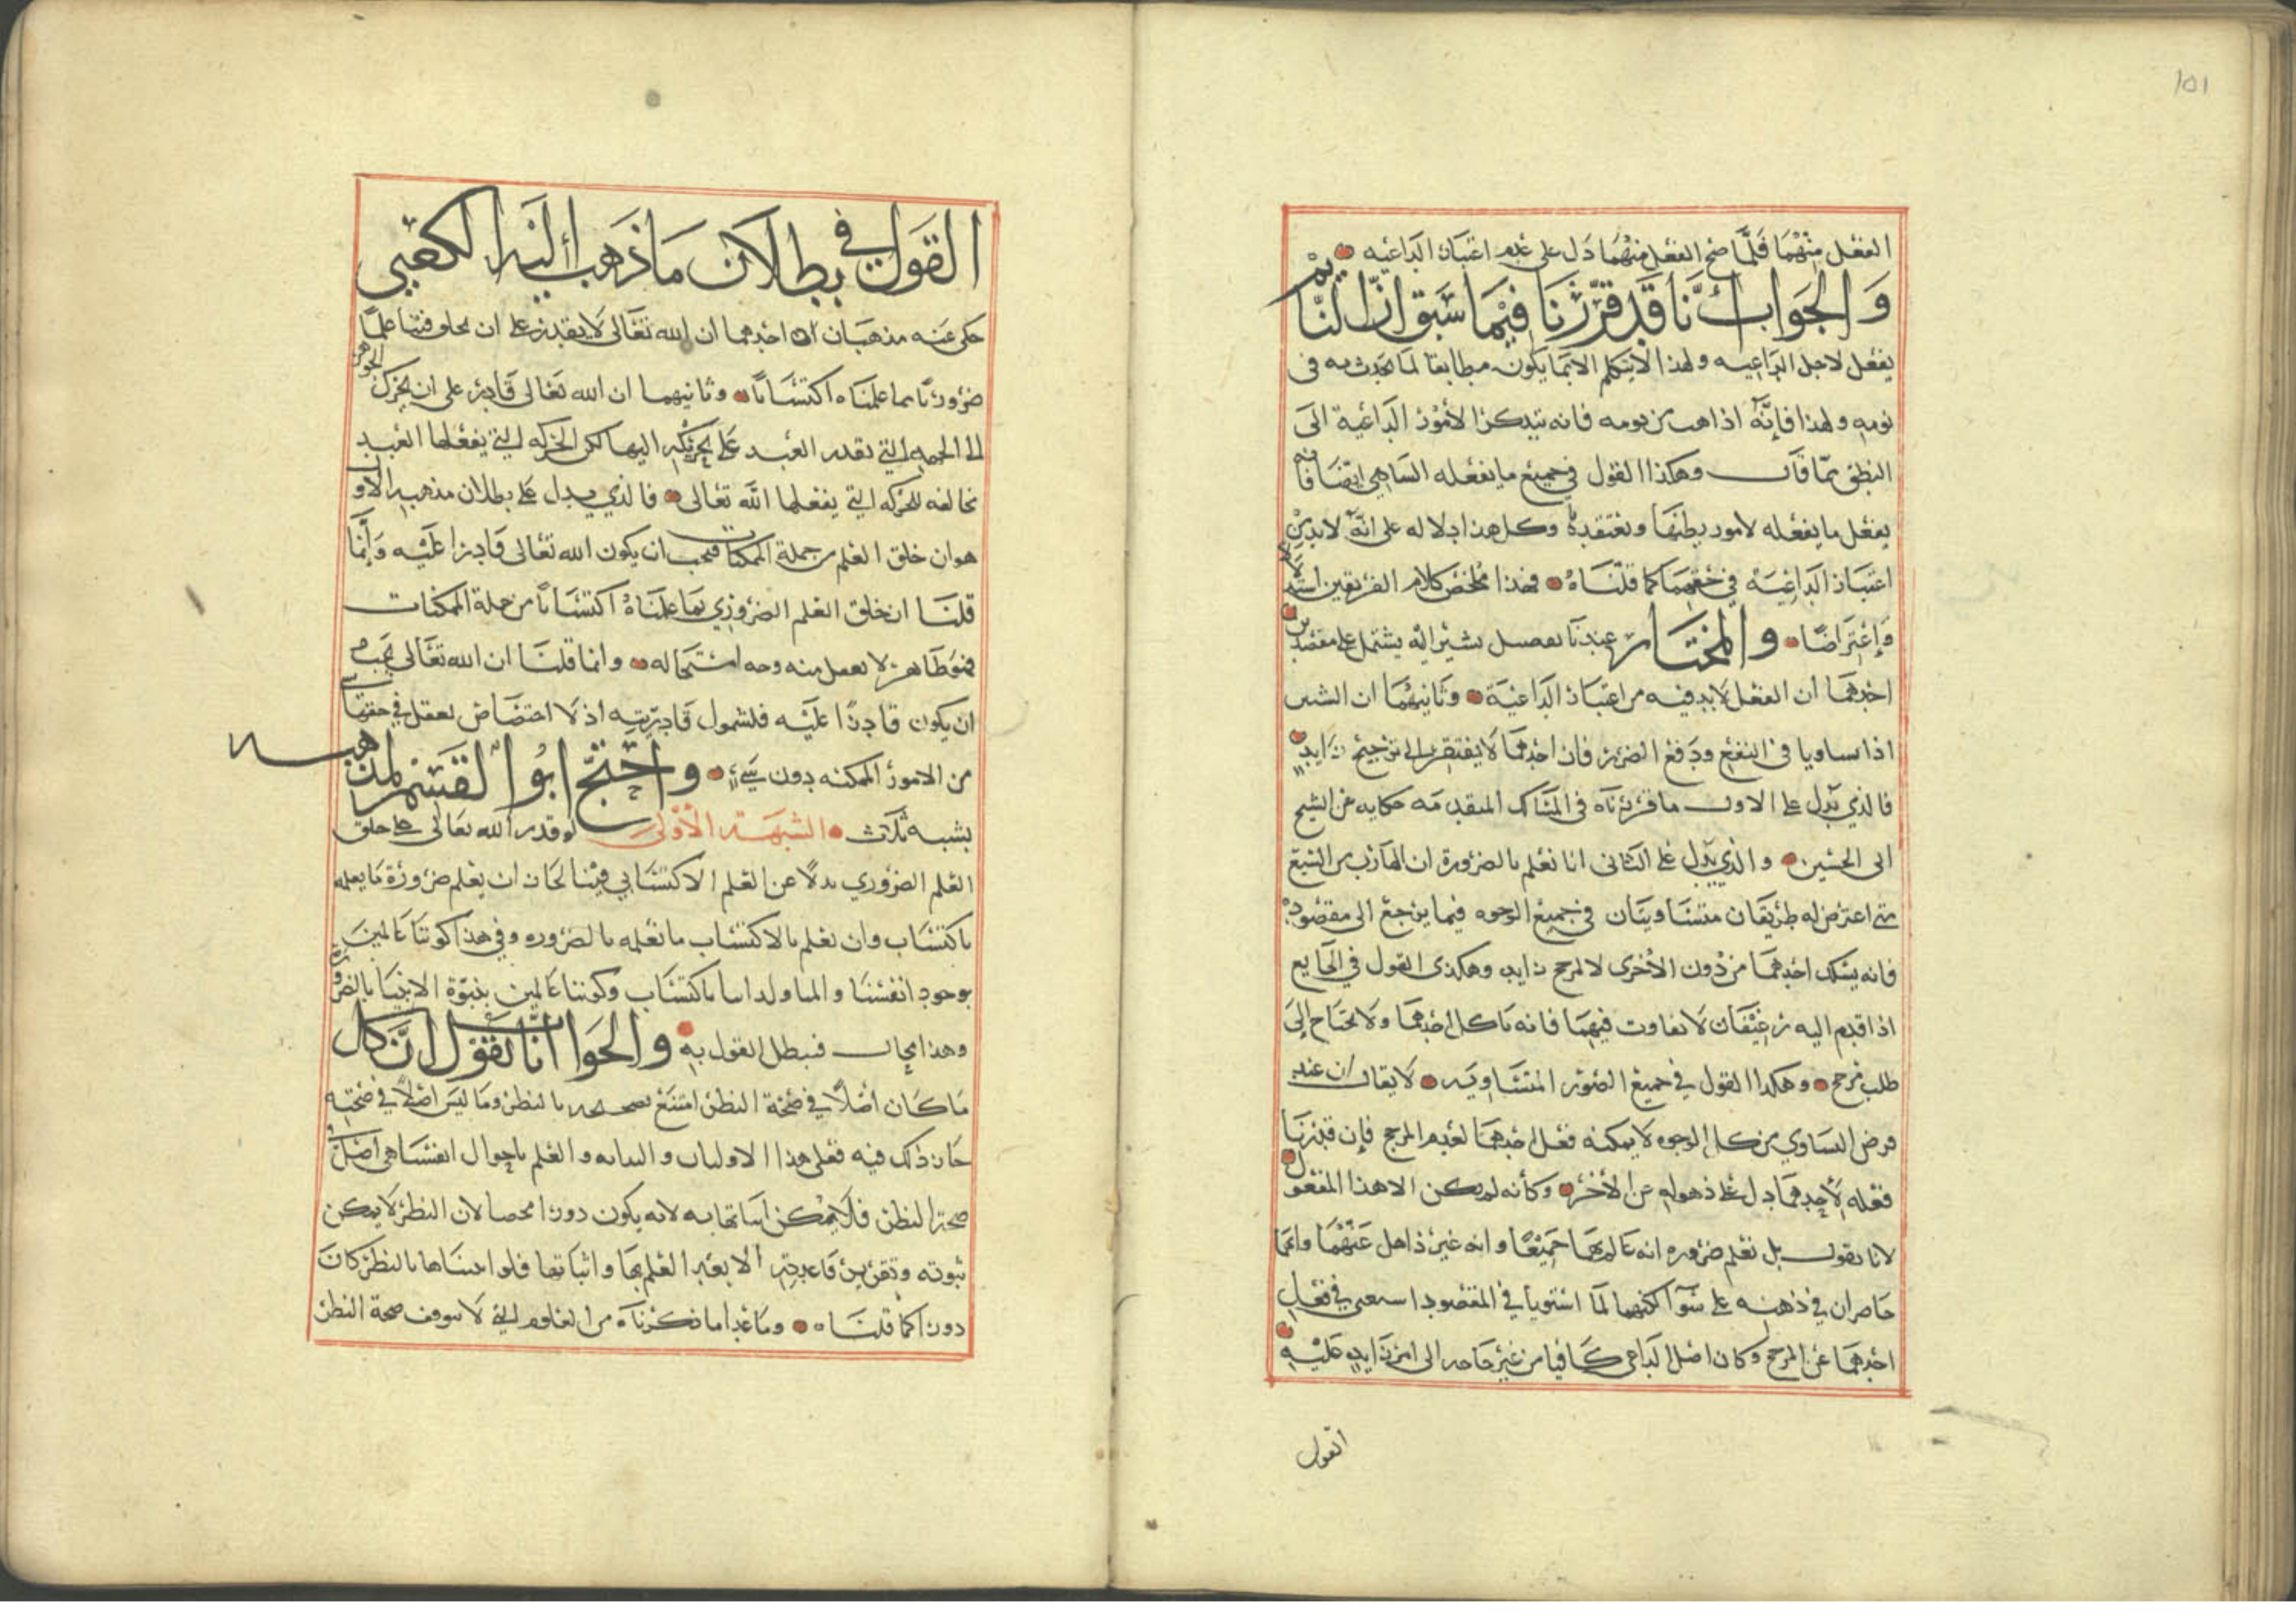 101
الفعل منهما فلما صح الفعل منهما دل على عدم اعتبار الداعيه
والجواب أنا قد قررنا فيما سبق ان النائم
يفعل لاجل الداعيه ولهذا لا يتكلم الا بما يكون مطابقا لما تحدث به فى
نومه ولهذا فإنه اذا هب من نومه فانه يتذكر الأمور الداعية الى
النطق بما قال وهكذا القول في جميع ما يفعله الساهي ايضا فانه
يفعل ما يفعله لامور يظنها ويعتقدها وكل هذا دلاله على انه لابد من
اعتبار الداعية في حقهما كما قلناه فهذا ملخص كلام الفريقين استدلالا
وإعتراضا والمختار عندنا تفصيل نشير اليه يشتمل على مقصدين
احدهما ان الفعل لابد فيه من اعتبار الداعية وثانيهما ان الشيئين
اذا تساويا فى النفع ودفع الضرر فان احدهما لا يفتقر الى ترجيح زايد
فالذي يدل على الاول ما قررناه فى المسالك المتقدمه حكايه عن الشيخ
ابى الحسين والذي يدل على الثانى انا نعلم بالضرورة ان الهارب من السبع
متى اعترض له طريقان متساويتان في جميع الوجوه فيما يرجع الى مقصوده
فانه يسلك احدهما من دون الأخرى لا لمرجح زايد وهكذى القول في الجايع
اذا قدم اليه رغيفان لا تفاوت فيهما فانه ياكل احدهما ولا يحتاج إلى
طلب مرجح وهكذا القول في جميع الصور المتساويه لا يقال ان عند
فرض التساوي من كل الوجوه لا يمكنه فعل احدهما لعدم المرجح فإن قدرنا
فعله لأحدهما دل على ذهوله عن الأخر وكأنه لم يكن الا هذا المفعول
لانا نقول بل نعلم ضروره انه عالم بهما جميعا وانه غير ذاهل عنهما وانهما
حاضران في ذهنه على سوآ لكنهما لما استويا في المقصود استغنى في فعل
احدهما عن المرجح وكان اصل الداعى كافيا من غير حاجه الى امر زايد عليه
القول
القول في بطلان ما ذهب اليه الكعبي
حكى عنه مذهبان احدهما ان الله تعالى لا يقدر على ان يخلق فينا علما
ضروريا بما علمناه اكتسابا وثانيهما ان الله تعالى قادر على ان يحرك الجوهر
الى الجهه التي يقدر العبد على تحريكه اليها لكن الحركه التي يفعلها العبد
مخالفه للحركه التي يفعلها الله تعالى فالذي يدل على بطلان مذهبه الاول
هو ان خلق العلم من جملة الممكنات فيجب ان يكون الله تعالى قادرا عليه وإنما
قلنا ان خلق العلم الضروري بما علمناه اكتسابا من جملة الممكنات
فهو ظاهر لا يعقل منه وجه استحاله وانما قلنا ان الله تعالى يجب
ان يكون قادرا عليه فلشمول قادريته اذ لا اختصاص يعقل في حقها
من الامور الممكنه دون شيء واحتج ابو القسم لمذهبه
بشبه ثلاث الشبهة الأولى لو قدر الله تعالى على خلق
العلم الضروري بدلا عن العلم الاكتسابي فينا لجاز ان يعلم ضرورة ما يعلمه
باكتساب وان نعلم بالاكتساب ما نعلمه بالضروره وفي هذا كوننا عالمين
بوجود انفسنا باكتساب وكوننا عالمين بنبوة الانبيا بالضرورة
وهذا محال فبطل القول به والجواب انا نقول ان كل
ما كان اصلا في صحة النظر امتنع تصحيحه بالنظر وما ليس اصلا في صحته
جاز ذلك فيه فعلى هذا الاوليات والعلم باحوال انفسنا هي اصل
صحة النظر فلا يمكن اثباتها به لانه يكون دورا محضا لان النظر لا يمكن
ثبوته وتقرير قاعدته الا بعد العلم بها واثباتها فلو اثبتناها بالنظر كان
دورا كما قلناه وما عدا ما ذكرناه من العلوم التي لا يتوقف صحة النظر